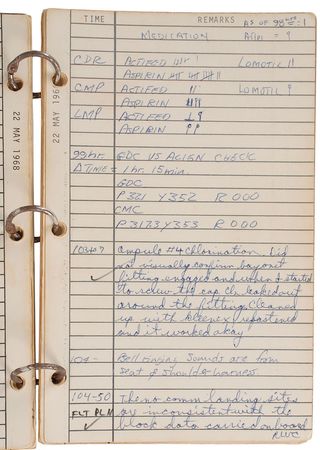 TIME REMARKS AS OF 98
MEDICATION
CDR ACTIFED LOMOTIL II
ASPIRIN
CMP ACTIFED II LOMOTIL
ASPIRIN
LMP ACTIFED
ASPIRIN
22 MAY 1968
22 MAY 196
99 hr. GDC VS ALIGN CHECK
Δ TIME = 1 hr. 15 min.
GDC
P321 Y352 R000
CMC
Y353 R000
Ampule #4 Chlorination. Did
not visually confirm bayonet
fitting engaged and when I started
to screw the cap Ch. leaked out
around the fitting. Cleaned
up with kleenex, refastened
and it worked okay
104- Bell ringing sounds are from
seat & shoulder harness.
104-50 The no comm landing sites
FLT PLN are inconsistent with the
block data carried onboard
RWC